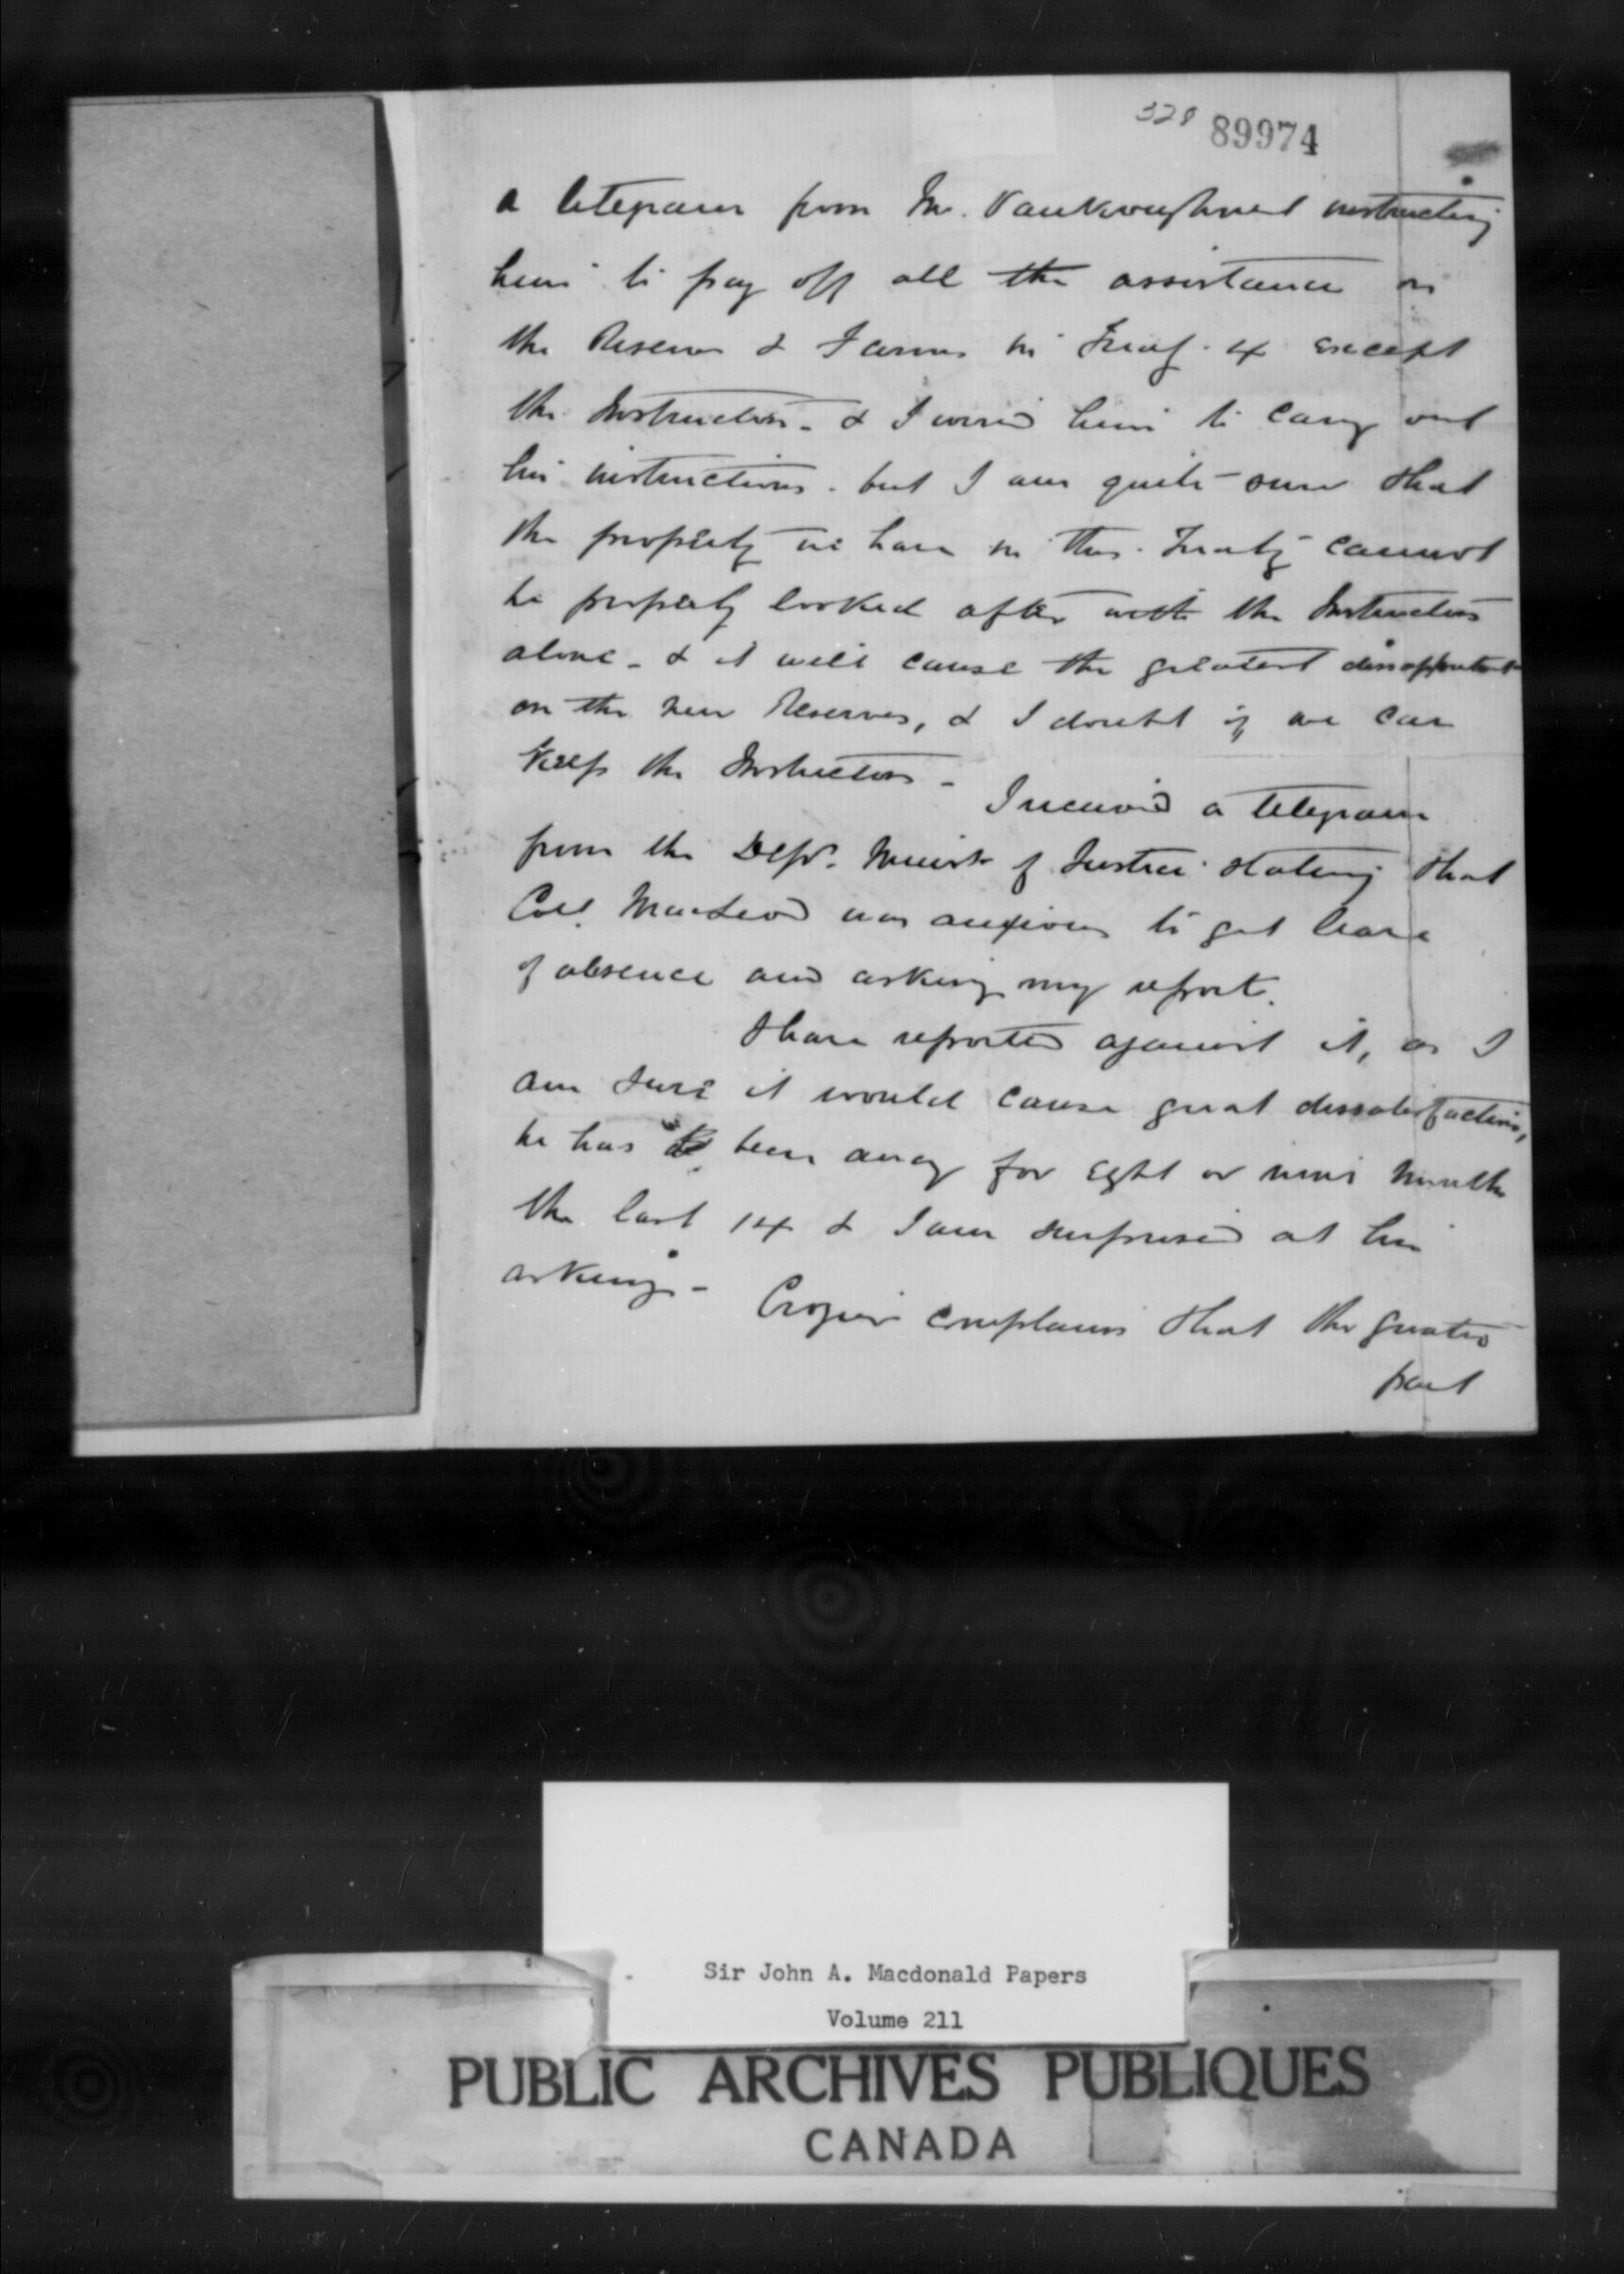 328 89974
a telegram from Mr. VanKoughnet instructing
him to pay off all the assistance on
the Reserves & Farms in Treaty 4 except
the Instructors - & I wired him to carry out
his instructions. but I am quite sure that
the property we have in this Treaty cannot
be properly looked after with the Instructors
alone - & it will cause the greatest
on the new Reserves, & I doubt if we can
Keep the Instructors -
I received a telegram
from the Depy. Minister of Justice stating that
Col. MacLeod was anxious to get leave
of absence and asking my report.
I have reported against it, as I
am sure it would cause great dissatisfaction,
he has been away for eght or nine months
the last 14 & I am surprised at his
asking -
Crozier complains that the greater
part
Sir John A. Macdonald Papers
Volume 211
PUBLIC ARCHIVES PUBLIQUES
CANADA